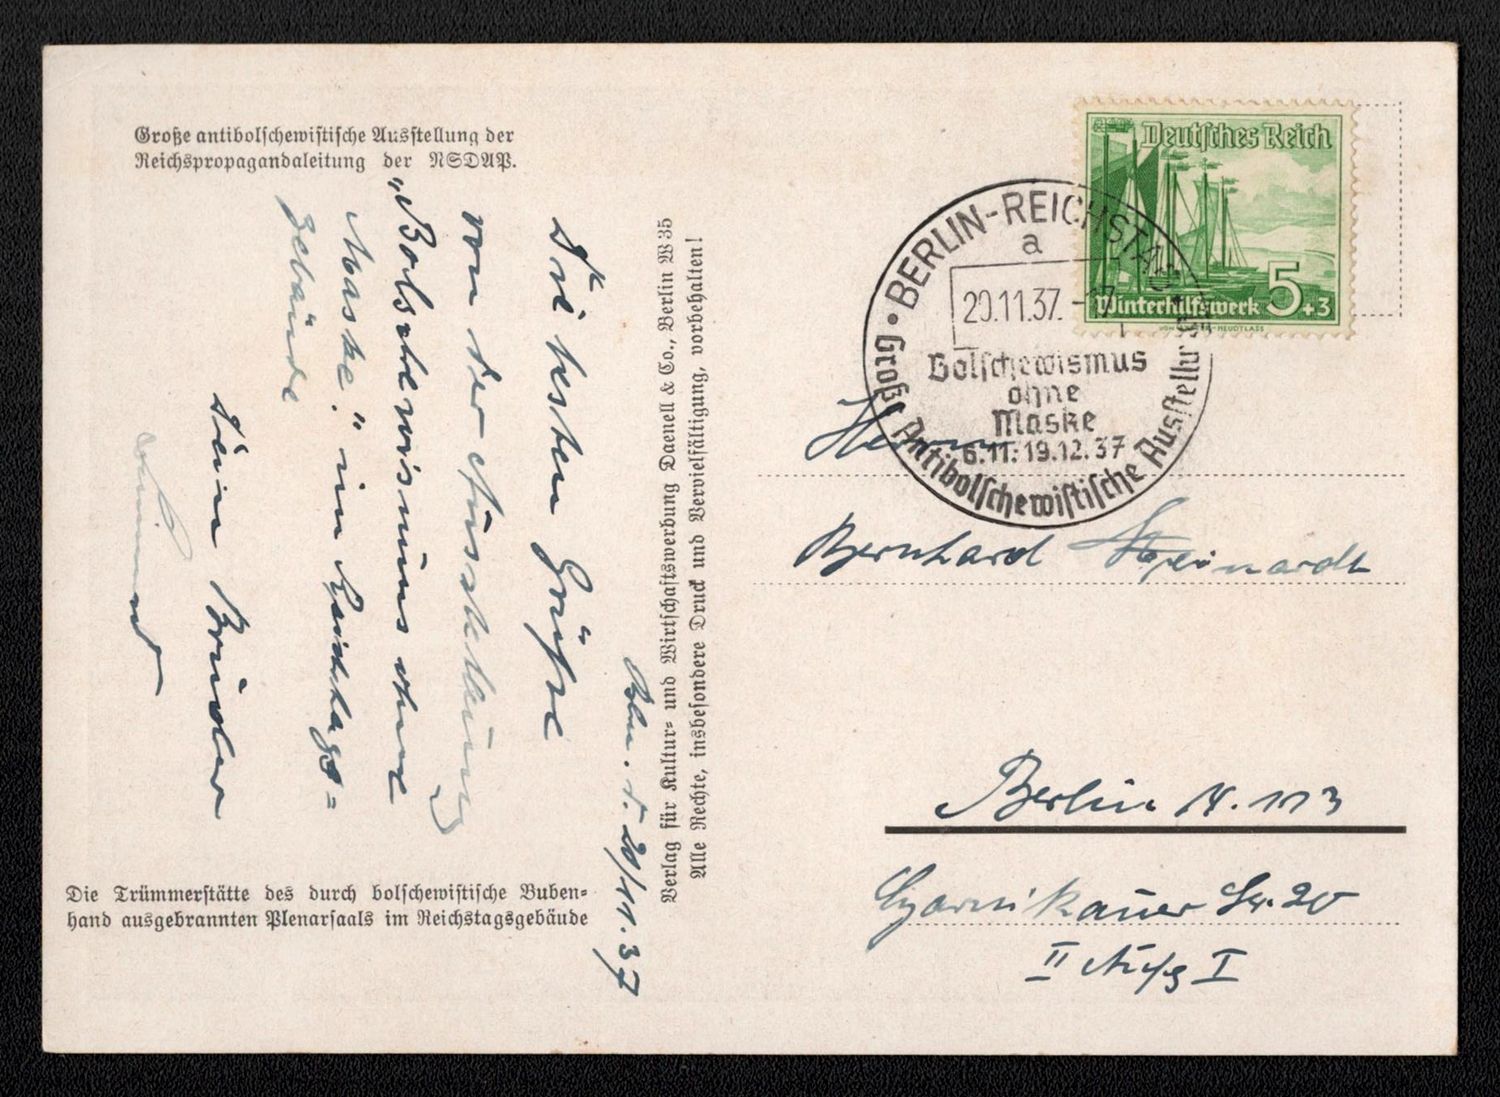 Große antibolschewistische Ausstellung der
Reichspropagandaleitung der NSDAP.
Bln. d. 20/11.37
Die besten Grüße
von der Ausstellung
„Bolschewismus ohne
Maske." im Reichstags=
gebäude
Dein Bruder
Die Trümmerstätte des durch bolschewistische Buben=
hand ausgebrannten Plenarsaals im Reichstagsgebäude
Verlag für Kultur= und Wirtschaftswerbung Daenell & Co., Berlin W 35
Alle Rechte, insbesondere Druck und Vervielfältigung, vorbehalten!
Deutsches Reich
Winterhilfswerk 5+3
BERLIN-REICHSTAG
a
20.11.37.-17
Bolschewismus
ohne
Maske
6.11.-19.12.37
Große Antibolschewistische Ausstellung
Herrn
Bernhard
Berlin N. 113
Czarnikauer Str. 20
II Aufg I